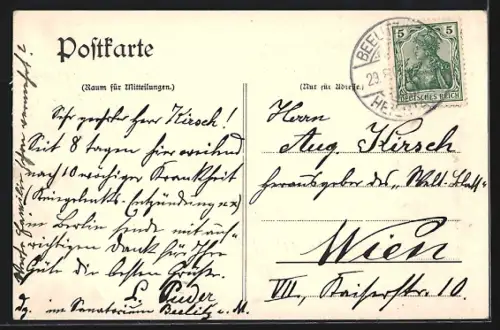 Postkarte
(Raum für Mitteilungen.)
(Nur für Adresse.)
Sehr geehrter Herr Kirsch!
Seit 8 Tagen hier weilend
nach 10 wöchiger Krankheit
(Entzündung
in Berlin sende mit auf-
richtigen Dank für Ihre
Güte die besten Grüsse.
L. Puder
zg. im Sanatorium Beelitz i. M.
BEELITZ
29
5 5
DEUTSCHES REICH
Herrn
Aug. Kirsch
herausgeber des „Welt-Blatt"
Wien
VII, Kaiserstr. 10.